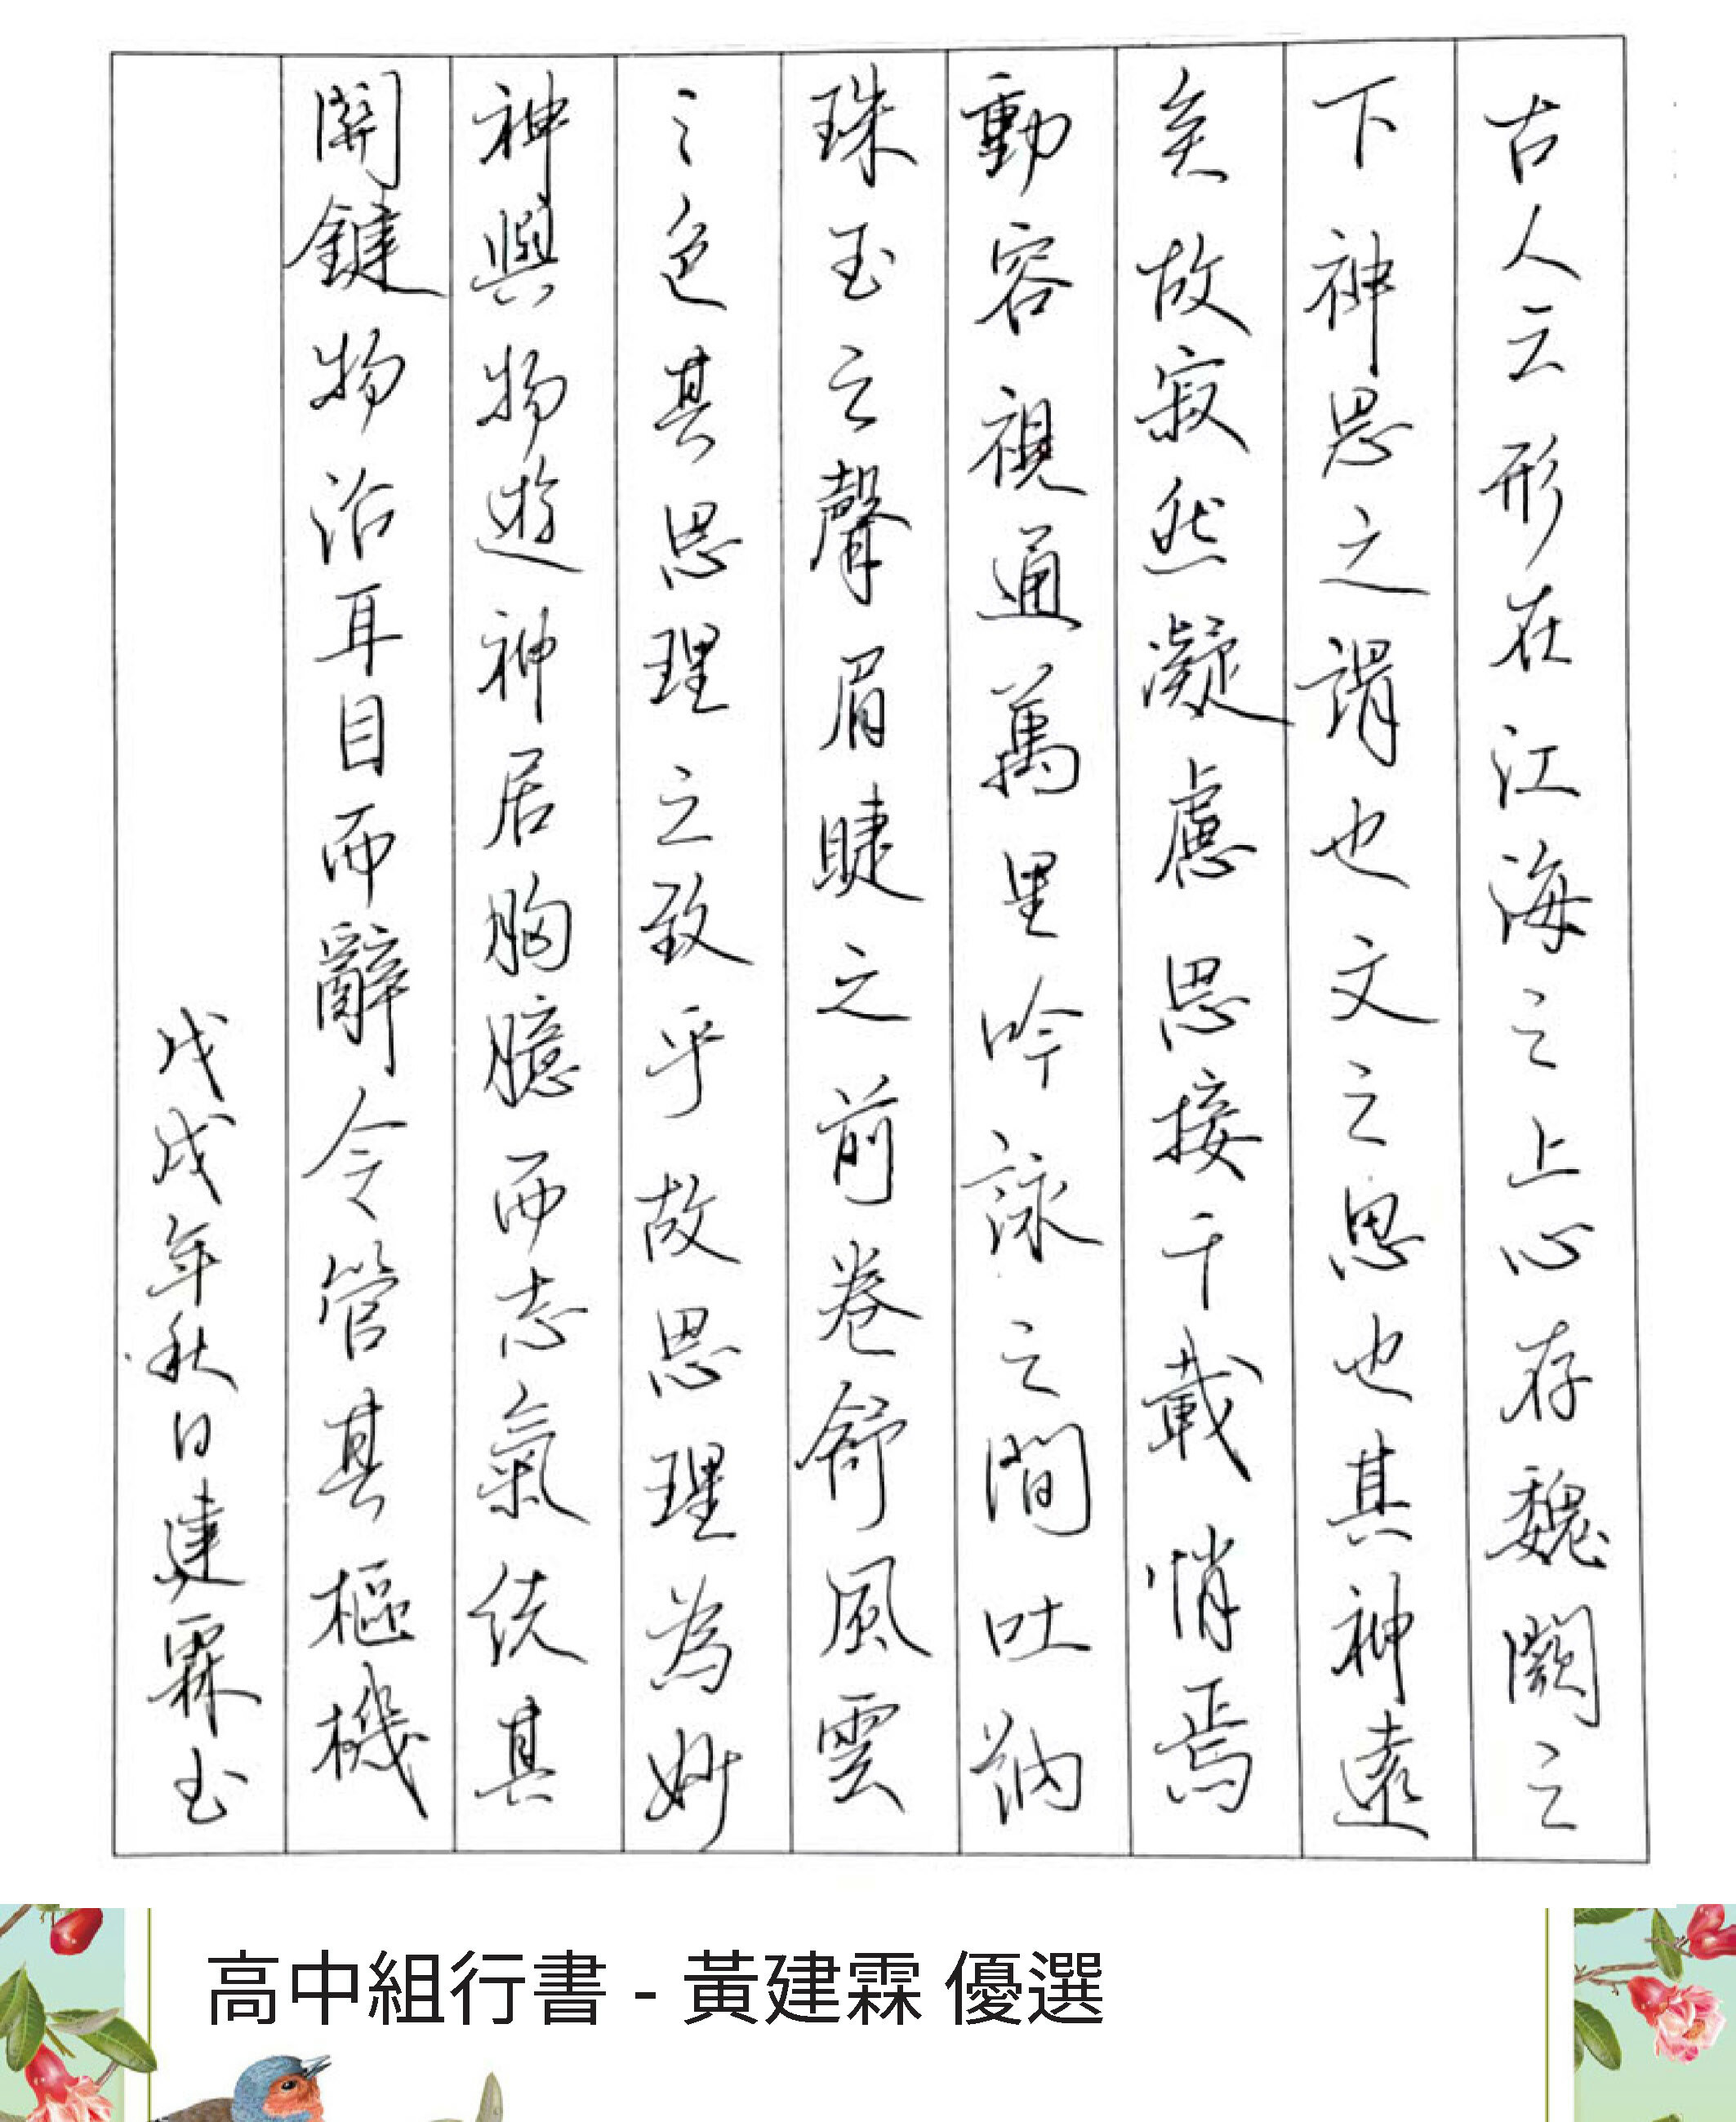 古人云形在江海之上心存魏闕之
下神思之謂也文之思也其神遠
矣故寂然凝慮思接千載悄焉
動容視通萬里吟詠之間吐納
珠玉之聲眉睫之前卷舒風雲
之色其思理之致乎故思理為妙
神與物遊神居胸臆而志氣統其
關鍵物沿耳目而辭令管其樞機
戊戌年秋日建霖書
高中組行書 - 黃建霖 優選